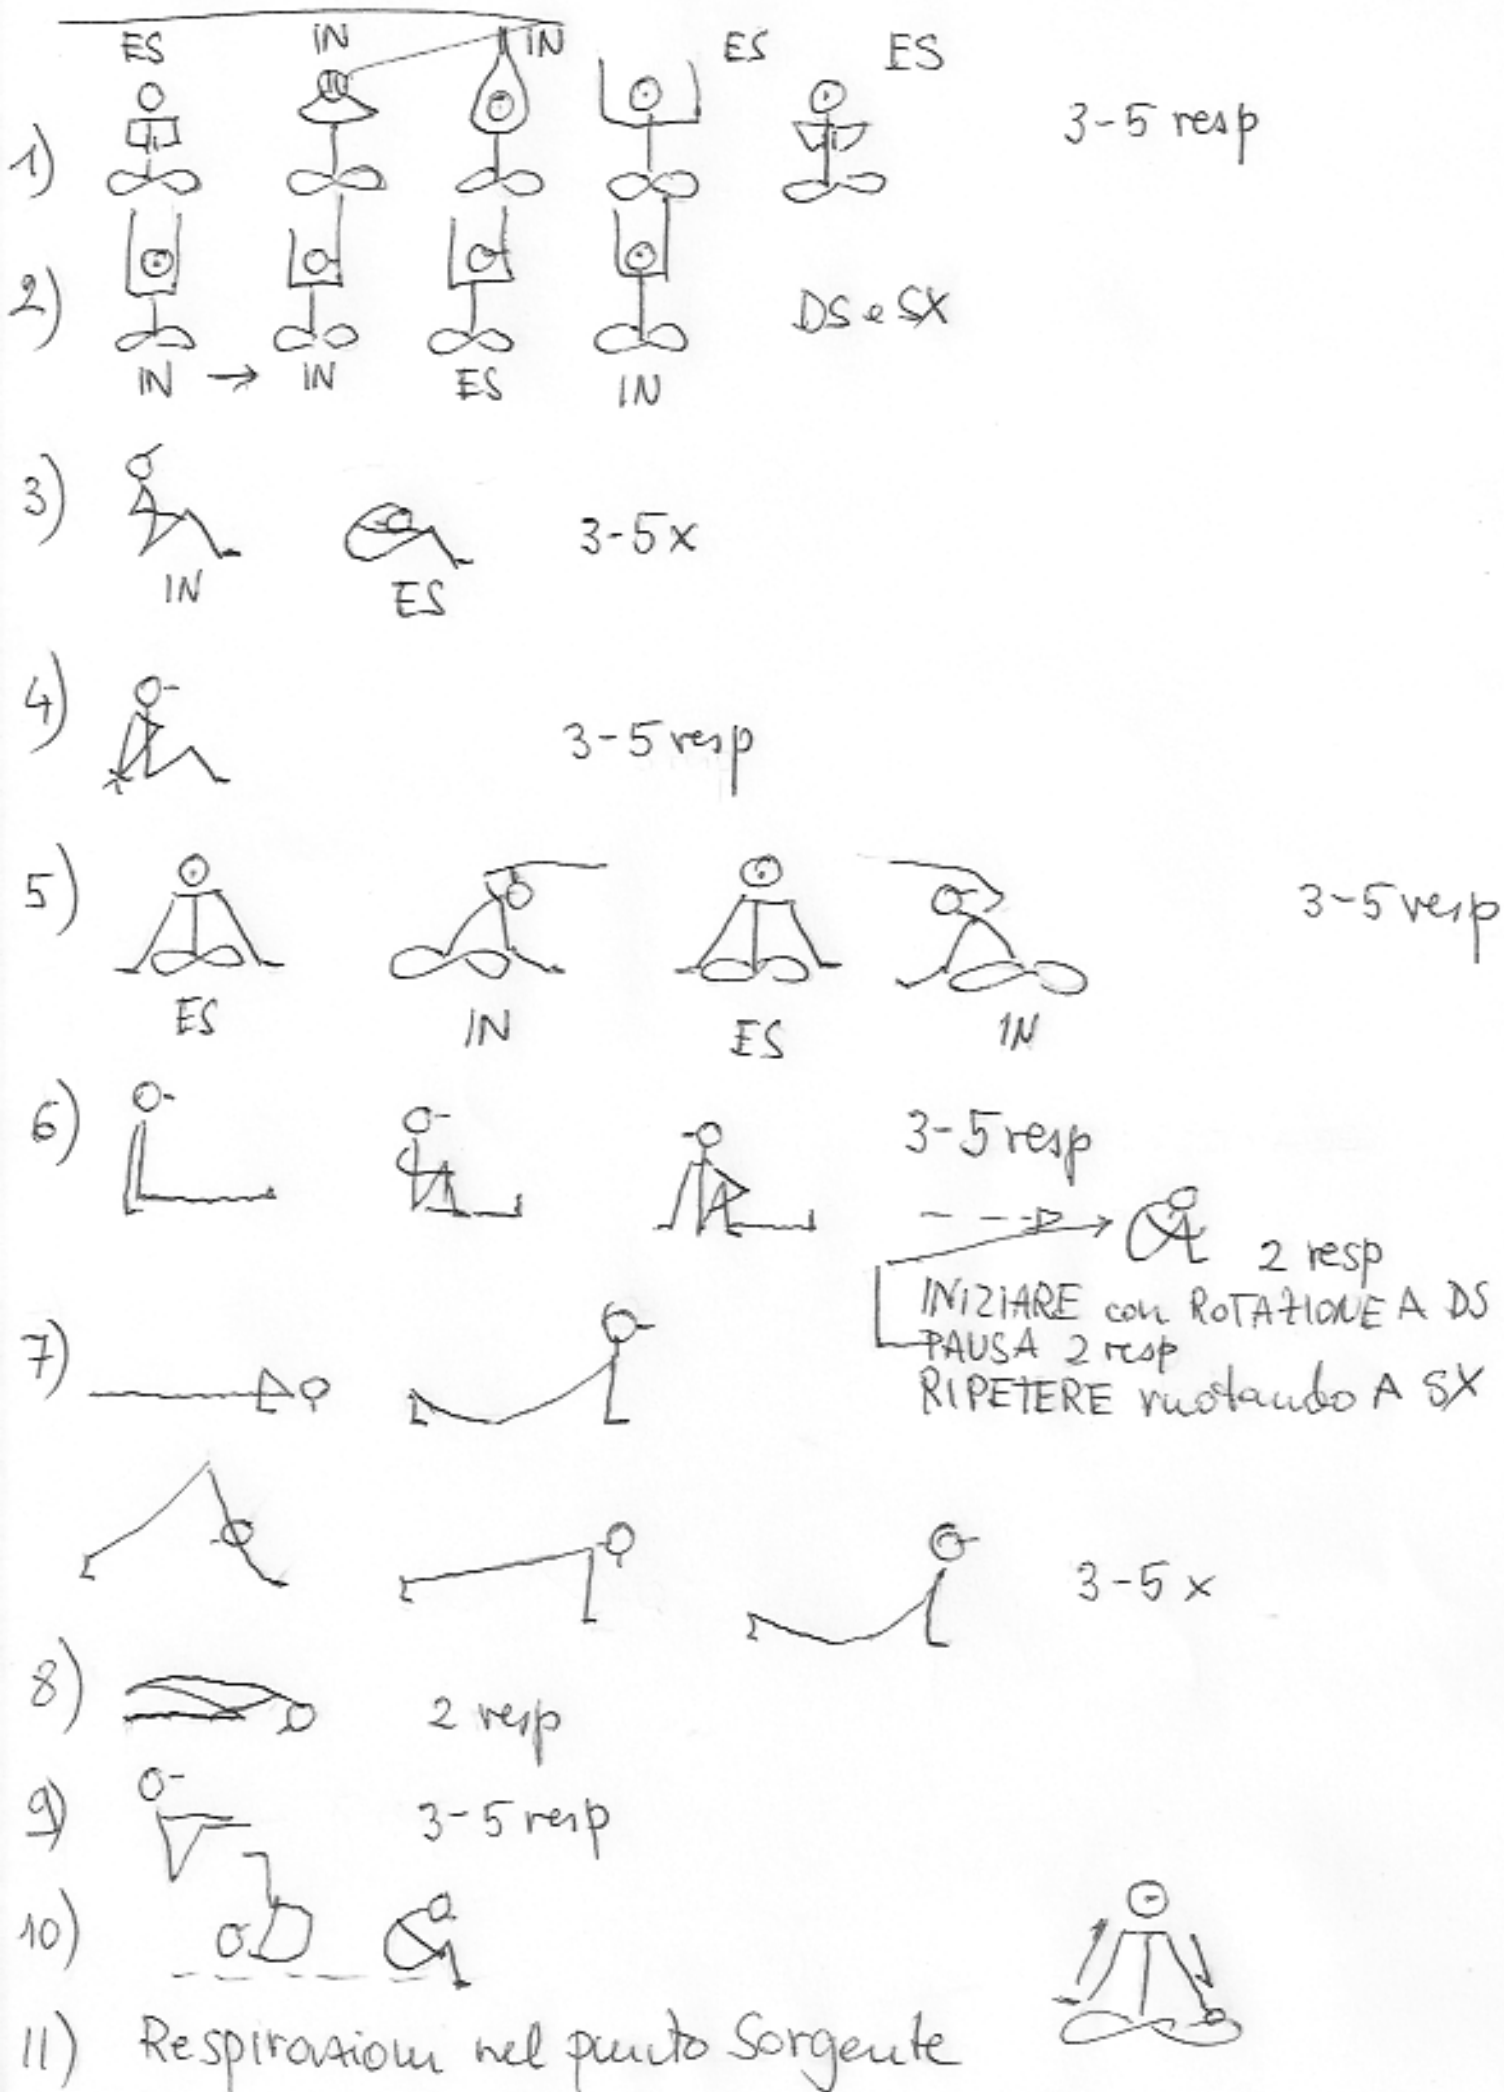 ES IN IN ES ES
1) 3-5 resp
2) DS e SX
IN → IN ES IN
3) 3-5x
IN ES
4) 3-5 resp
5) 3-5 resp
ES IN ES IN
6) 3-5 resp
2 resp
INIZIARE con ROTAZIONE A DS
PAUSA 2 resp
RIPETERE ruotando A SX
7)
3-5 x
8) 2 resp
9) 3-5 resp
10)
11) Respirazioni nel punto Sorgente